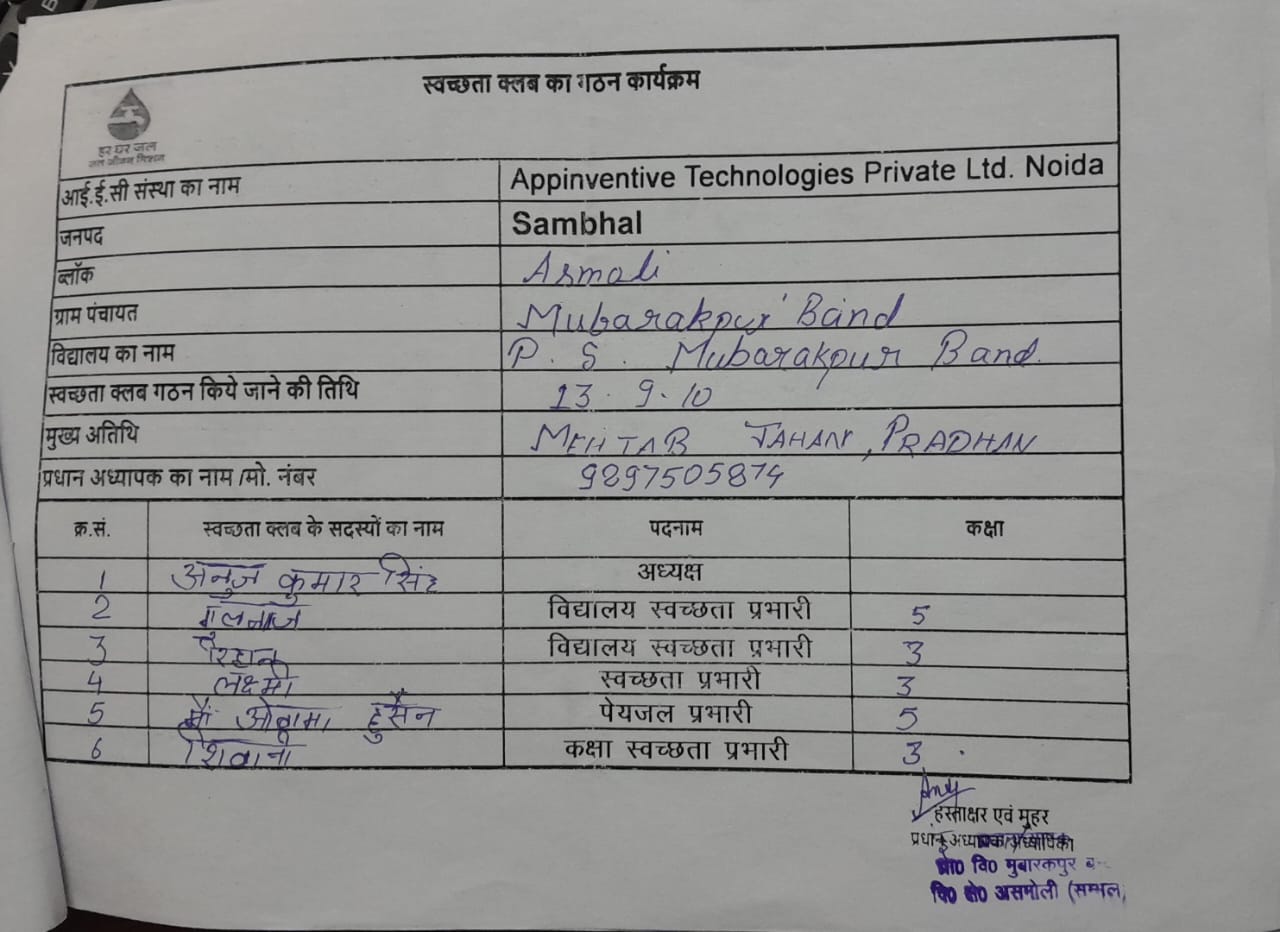 स्वच्छता क्लब का गठन कार्यक्रम
हर घर जल
जल जीवन मिशन
आई.ई.सी संस्था का नाम Appinventive Technologies Private Ltd. Noida
जनपद Sambhal
ब्लॉक Asmoli
ग्राम पंचायत Mubarakpur Band
विद्यालय का नाम P. S. Mubarakpur Band.
स्वच्छता क्लब गठन किये जाने की तिथि 13.9.10
मुख्य अतिथि MEHTAB JAHAN, PRADHAN
प्रधान अध्यापक का नाम /मो. नंबर 9897505874
क्र.सं. स्वच्छता क्लब के सदस्यों का नाम पदनाम कक्षा
1 अनुज कुमार सिंह अध्यक्ष
2 गुलनाज विद्यालय स्वच्छता प्रभारी 5
3 विद्यालय स्वच्छता प्रभारी 3
4 लक्ष्मी स्वच्छता प्रभारी 3
5 हुसैन पेयजल प्रभारी 5
6 शिवानी कक्षा स्वच्छता प्रभारी 3
हस्ताक्षर एवं मुहर
प्रधान अध्यापक/अध्यापिका
प्रा0 वि0 मुबारकपुर
वि0 क्षे0 असमोली (सम्भल)